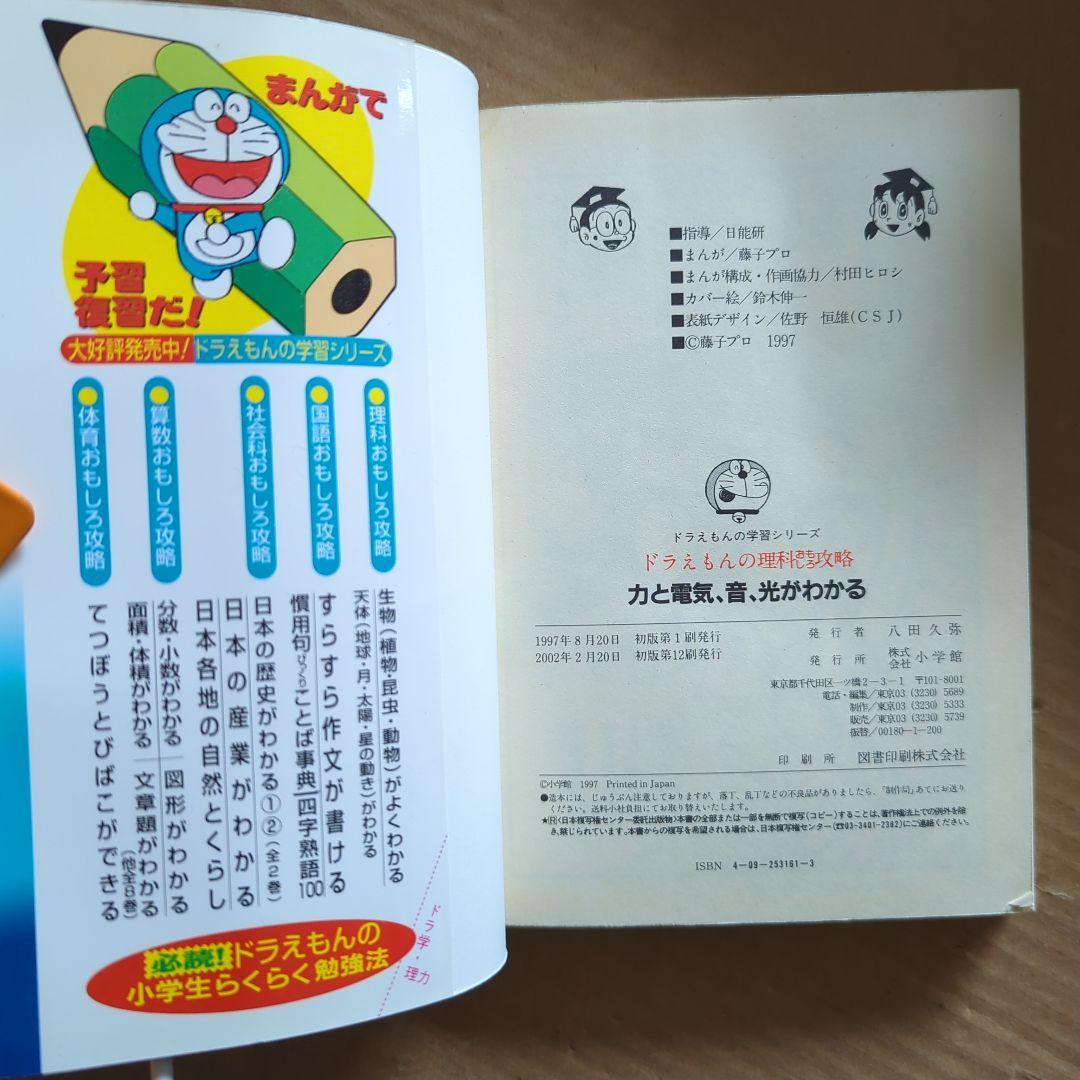 まんがで
予習
復習だ!
大好評発売中! ドラえもんの学習シリーズ
●理科おもしろ攻略
生物(植物・昆虫・動物)がよくわかる
天体(地球・月・太陽・星の動き)がわかる
●国語おもしろ攻略
すらすら作文が書ける
慣用句びっくりことば事典 四字熟語100
●社会科おもしろ攻略
日本の歴史がわかる①②(全2巻)
日本の産業がわかる
日本各地の自然とくらし
●算数おもしろ攻略
分数・小数がわかる 図形がわかる
面積・体積がわかる 文章題がわかる
(他全8巻)
●体育おもしろ攻略
てつぼうとびばこができる
必読!ドラえもんの
小学生らくらく勉強法
ドラ学・理力
■指導/日能研
■まんが/藤子プロ
■まんが構成・作画協力/村田ヒロシ
■カバー絵/鈴木伸一
■表紙デザイン/佐野 恒雄(CSJ)
■©藤子プロ 1997
ドラえもんの学習シリーズ
ドラえもんの理科おもしろ攻略
力と電気、音、光がわかる
1997年8月20日 初版第1刷発行
2002年2月20日 初版第12刷発行
発行者 八田久弥
発行所 株式会社 小学館
東京都千代田区一ツ橋2-3-1 〒101-8001
電話・編集/東京03(3230)5689
制作/東京03(3230)5333
販売/東京03(3230)5739
振替/00180-1-200
印刷所 図書印刷株式会社
©小学館 1997 Printed in Japan
●造本には、じゅうぶん注意しておりますが、落丁、乱丁などの不良品がありましたら、「制作局」あてにお送り
ください。送料小社負担にてお取り替えいたします。
★Ⓡ〈日本複写権センター委託出版物〉本書の全部または一部を無断で複写(コピー)することは、著作権法上での例外を除
き、禁じられています。本書からの複写を希望される場合は、日本複写権センター(☎03-3401-2382)にご連絡ください。
ISBN 4-09-253161-3